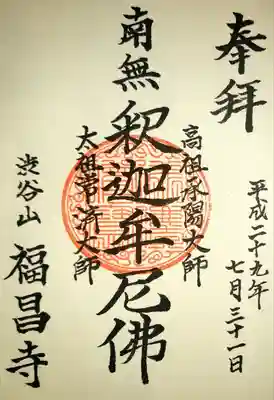 奉拝
平成二十九年
七月三十一日
高祖承陽大師
南無釈迦牟尼佛
太祖常済大師
渋谷山
福昌寺